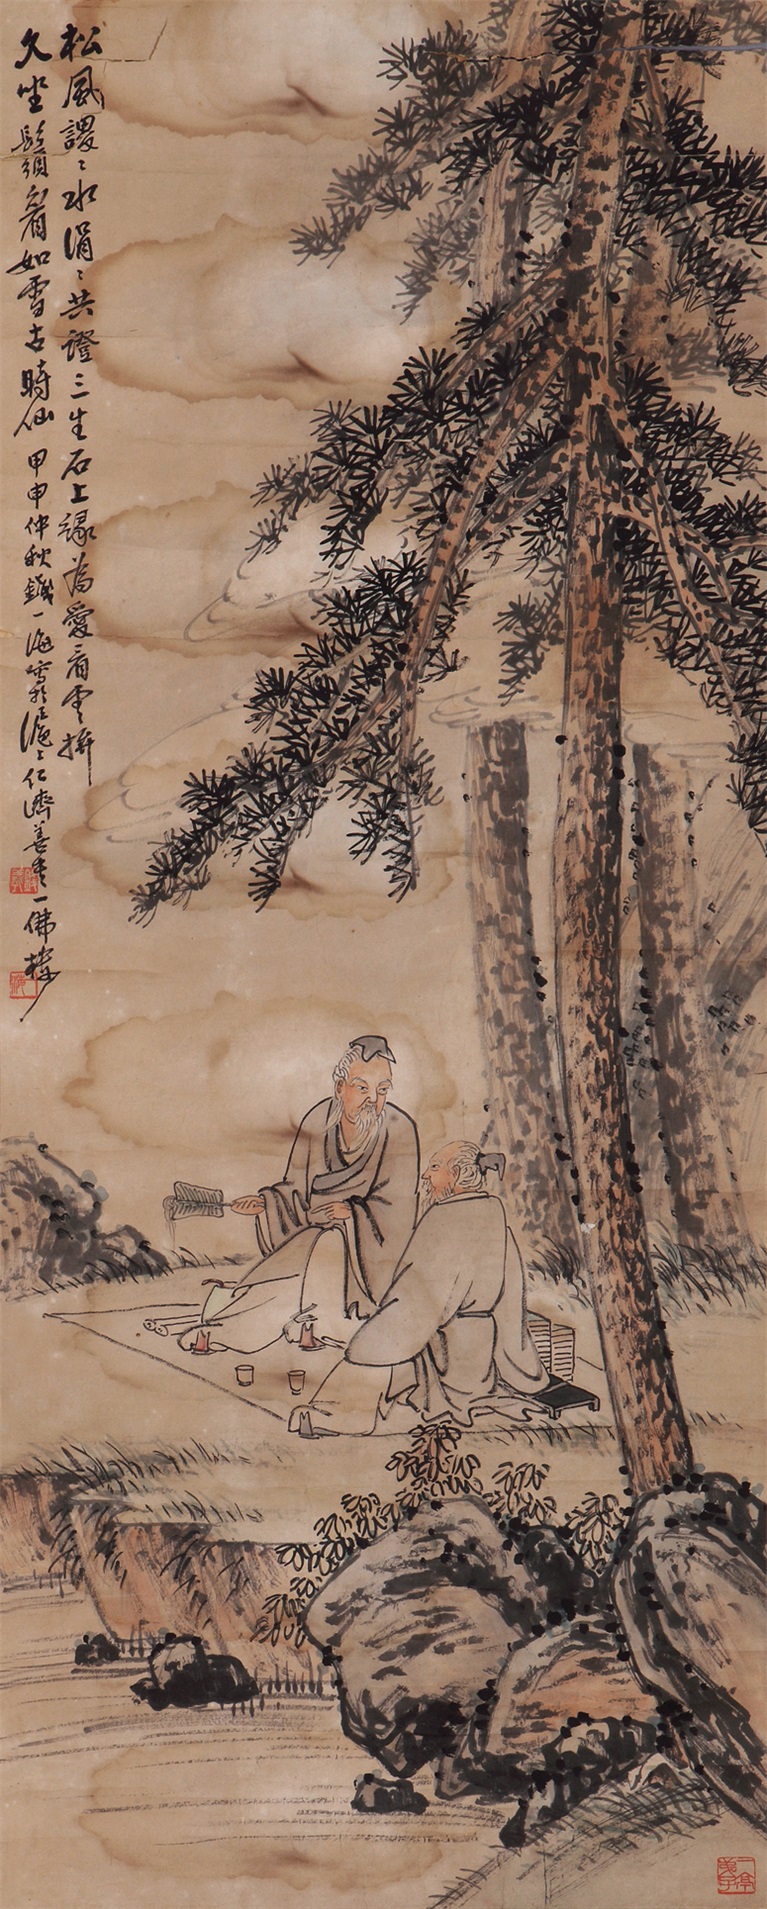 松風謖〻水涓〻共證三生石上緣為愛看雲拚
久坐鬚眉如雪古時仙 甲申仲秋錢一海寫於滬上仁濟善堂一佛樓